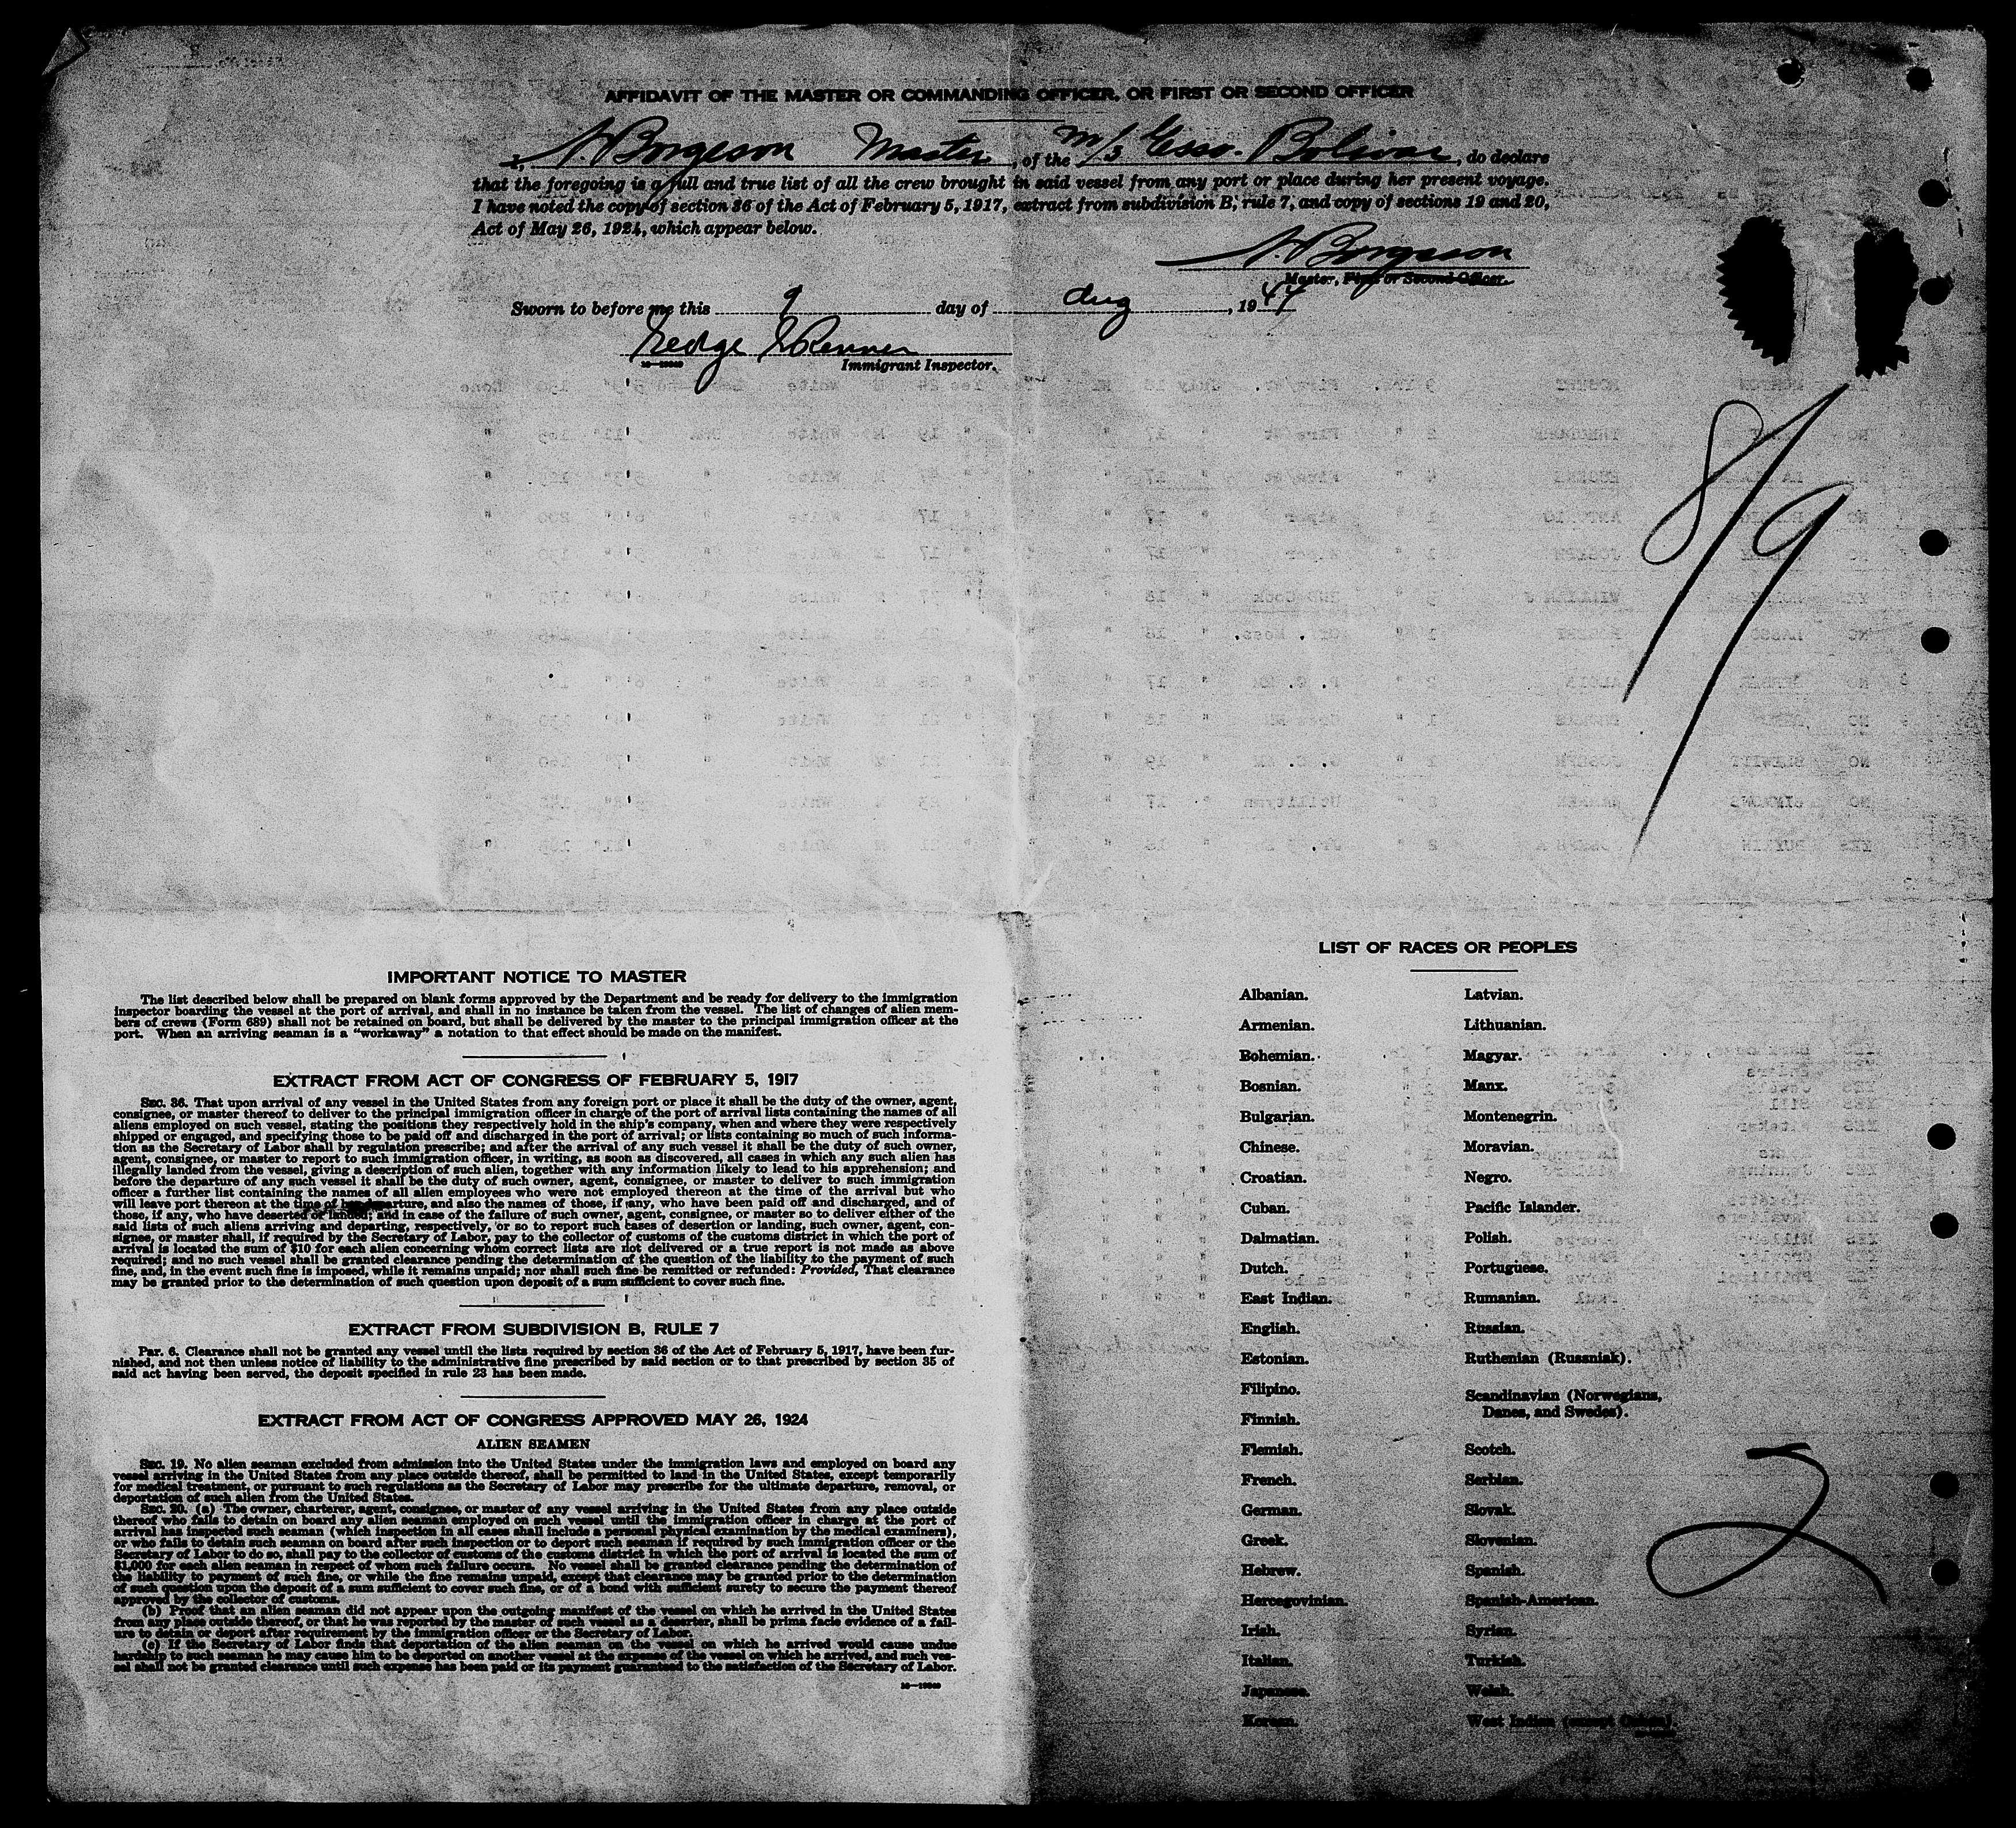 AFFIDAVIT OF THE MASTER OR COMMANDING OFFICER, OR FIRST OR SECOND OFFICER
I, A. Borgeson Master, of the M/S Esso. Bolivar, do declare
that the foregoing is a full and true list of all the crew brought in said vessel from any port or place during her present voyage.
I have noted the copy of section 36 of the Act of February 5, 1917, extract from subdivision B, rule 7, and copy of sections 19 and 20,
Act of May 26, 1924, which appear below.
A. Borgeson
Master, First or Second Officer.
Sworn to before me this 9 day of Aug, 1944
George Renner
16—19849 Immigrant Inspector.
8/9
IMPORTANT NOTICE TO MASTER
The list described below shall be prepared on blank forms approved by the Department and be ready for delivery to the immigration
inspector boarding the vessel at the port of arrival, and shall in no instance be taken from the vessel. The list of changes of alien mem-
bers of crews (Form 689) shall not be retained on board, but shall be delivered by the master to the principal immigration officer at the
port. When an arriving seaman is a "workaway" a notation to that effect should be made on the manifest.
EXTRACT FROM ACT OF CONGRESS OF FEBRUARY 5, 1917
SEC. 36. That upon arrival of any vessel in the United States from any foreign port or place it shall be the duty of the owner, agent,
consignee, or master thereof to deliver to the principal immigration officer in charge of the port of arrival lists containing the names of all
aliens employed on such vessel, stating the positions they respectively hold in the ship's company, when and where they were respectively
shipped or engaged, and specifying those to be paid off and discharged in the port of arrival; or lists containing so much of such informa-
tion as the Secretary of Labor shall by regulation prescribe; and after the arrival of any such vessel it shall be the duty of such owner,
agent, consignee, or master to report to such immigration officer, in writing, as soon as discovered, all cases in which any such alien has
illegally landed from the vessel, giving a description of such alien, together with any information likely to lead to his apprehension; and
before the departure of any such vessel it shall be the duty of such owner, agent, consignee, or master to deliver to such immigration
officer a further list containing the names of all alien employees who were not employed thereon at the time of the arrival but who
will leave port thereon at the time of her departure, and also the names of those, if any, who have been paid off and discharged, and of
those, if any, who have deserted or landed; and in case of the failure of such owner, agent, consignee, or master so to deliver either of the
said lists of such aliens arriving and departing, respectively, or so to report such cases of desertion or landing, such owner, agent, con-
signee, or master shall, if required by the Secretary of Labor, pay to the collector of customs of the customs district in which the port of
arrival is located the sum of $10 for each alien concerning whom correct lists are not delivered or a true report is not made as above
required; and no such vessel shall be granted clearance pending the determination of the question of the liability to the payment of such
fine, and, in the event such fine is imposed, while it remains unpaid; nor shall such fine be remitted or refunded: Provided, That clearance
may be granted prior to the determination of such question upon deposit of a sum sufficient to cover such fine.
EXTRACT FROM SUBDIVISION B, RULE 7
Par. 6. Clearance shall not be granted any vessel until the lists required by section 36 of the Act of February 5, 1917, have been fur-
nished, and not then unless notice of liability to the administrative fine prescribed by said section or to that prescribed by section 35 of
said act having been served, the deposit specified in rule 23 has been made.
EXTRACT FROM ACT OF CONGRESS APPROVED MAY 26, 1924
ALIEN SEAMEN
SEC. 19. No alien seaman excluded from admission into the United States under the immigration laws and employed on board any
vessel arriving in the United States from any place outside thereof, shall be permitted to land in the United States, except temporarily
for medical treatment, or pursuant to such regulations as the Secretary of Labor may prescribe for the ultimate departure, removal, or
deportation of such alien from the United States.
SEC. 20. (a) The owner, charterer, agent, consignee, or master of any vessel arriving in the United States from any place outside
thereof who fails to detain on board any alien seaman employed on such vessel until the immigration officer in charge at the port of
arrival has inspected such seaman (which inspection in all cases shall include a personal physical examination by the medical examiners),
or who fails to detain such seaman on board after such inspection or to deport such seaman if required by such immigration officer or the
Secretary of Labor to do so, shall pay to the collector of customs of the customs district in which the port of arrival is located the sum of
$1,000 for each alien seaman in respect of whom such failure occurs. No vessel shall be granted clearance pending the determination of
the liability to payment of such fine, or while the fine remains unpaid, except that clearance may be granted prior to the determination
of such question upon the deposit of a sum sufficient to cover such fine, or of a bond with sufficient surety to secure the payment thereof
approved by the collector of customs.
(b) Proof that an alien seaman did not appear upon the outgoing manifest of the vessel on which he arrived in the United States
from any place outside thereof, or that he was reported by the master of such vessel as a deserter, shall be prima facie evidence of a fail-
ure to detain or deport after requirement by the immigration officer or the Secretary of Labor.
(c) If the Secretary of Labor finds that deportation of the alien seaman on the vessel on which he arrived would cause undue
hardship to such seaman he may cause him to be deported on another vessel at the expense of the vessel on which he arrived, and such ves-
sel shall not be granted clearance until such expense has been paid or its payment guaranteed to the satisfaction of the Secretary of Labor.
16—19849
LIST OF RACES OR PEOPLES
Albanian.
Armenian.
Bohemian.
Bosnian.
Bulgarian.
Chinese.
Croatian.
Cuban.
Dalmatian.
Dutch.
East Indian.
English.
Estonian.
Filipino.
Finnish.
Flemish.
French.
German.
Greek.
Hebrew.
Hercegovinian.
Irish.
Italian.
Japanese.
Korean.
Latvian.
Lithuanian.
Magyar.
Manx.
Montenegrin.
Moravian.
Negro.
Pacific Islander.
Polish.
Portuguese.
Rumanian.
Russian.
Ruthenian (Russniak).
Scandinavian (Norwegians,
Danes, and Swedes).
Scotch.
Serbian.
Slovak.
Slovenian.
Spanish.
Spanish-American.
Syrian.
Turkish.
Welsh.
West Indian (except Cuban).
2